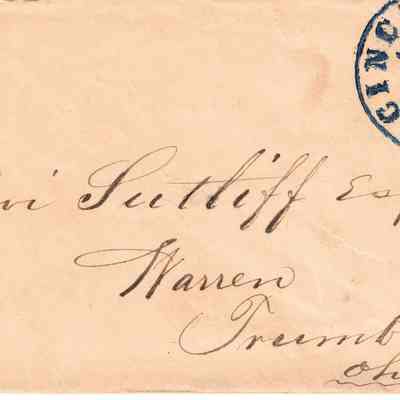 CINC
vi Sutliff Esq
Warren
Trumb
Ohi